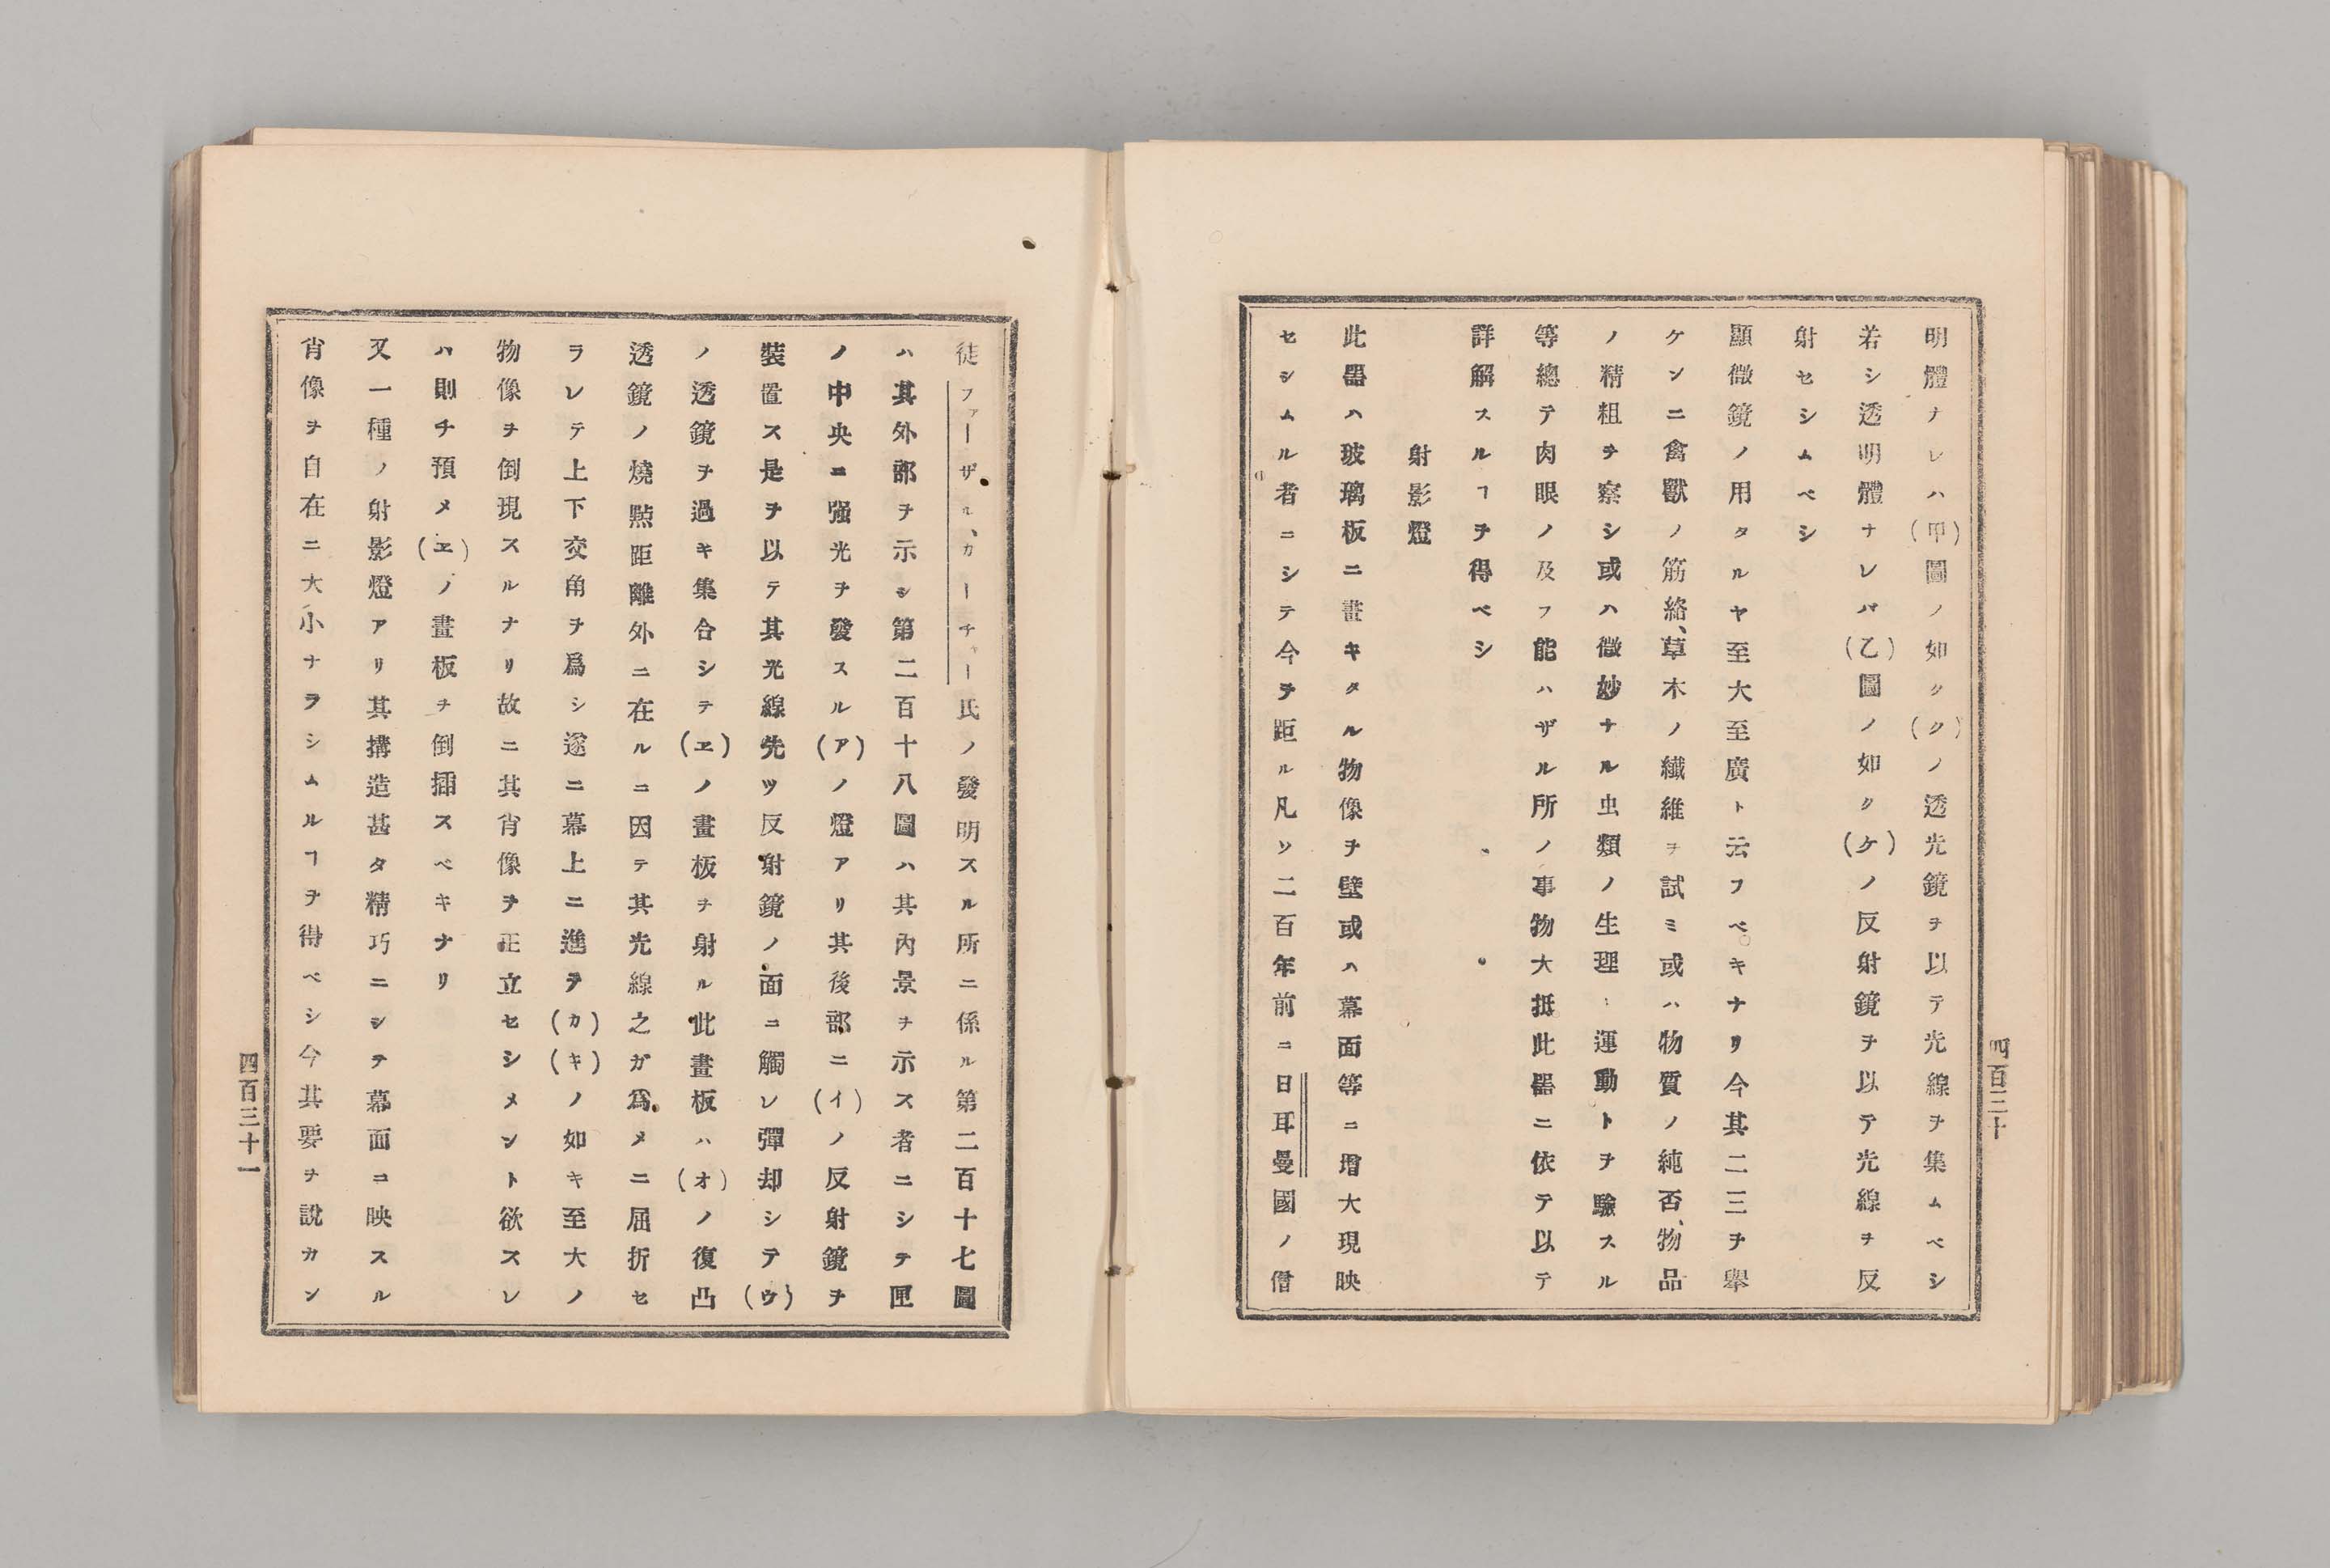 明體ナレハ(甲)圖ノ如ク(ク)ノ透光鏡ヲ以テ光線ヲ集ムベシ
若シ透明體ナレバ(乙)圖ノ如ク(ケ)ノ反射鏡ヲ以テ光線ヲ反
射セシムベシ
顯微鏡ノ用タルヤ至大至廣ト云フベキナリ今其二三ヲ舉
ケンニ禽獸ノ筋絡、草木ノ纖維ヲ試ミ或ハ物質ノ純否、物品
ノ精粗ヲ察シ或ハ微妙ナル虫類ノ生理運動トヲ驗スル
等總テ肉眼ノ及フ能ハザル所ノ事物大抵此器ニ依テ以テ
詳解スルヿヲ得ベシ
射影燈
此器ハ玻璃板ニ畫キタル物像ヲ壁或ハ幕面等ニ增大現映
セシムル者ニシテ今ヲ距ル凡ソ二百年前ニ日耳曼國ノ僧
四百三十
徒ファーザル、カーチャー氏ノ發明スル所ニ係ル第二百十七圖
ハ其外部ヲ示シ第二百十八圖ハ其內景ヲ示ス者ニシテ匣
ノ中央ニ强光ヲ發スル(ア)ノ燈アリ其後部ニ(イ)ノ反射鏡ヲ
裝置ス是ヲ以テ其光線先ツ反射鏡ノ面ニ觸レ彈却シテ(ウ)
ノ透鏡ヲ過キ集合シテ(ヱ)ノ畫板ヲ射ル此畫板ハ(オ)ノ復凸
透鏡ノ燒點距離外ニ在ルニ因テ其光線之ガ爲メニ屈折セ
ラレテ上下交角ヲ爲シ遂ニ幕上ニ進ヲ(カ)(キ)ノ如キ至大ノ
物像ヲ倒現スルナリ故ニ其肖像ヲ正立セシメント欲スレ
ハ則チ預メ(ヱ)ノ畫板ヲ倒插スベキナリ
又一種ノ射影燈アリ其搆造甚タ精巧ニシテ幕面コ映スル
肖像ヲ自在ニ大小ナラシムルヿヲ得ベシ今其要ヲ說カン
四百三十一